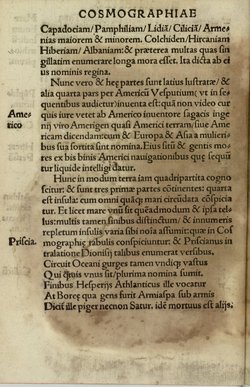 COSMOGRAPHIAE
Capadociam/Pamphiliam/Lidiã/Ciliciã/Armeni
as maiorem & minorem. Colchiden/Hircaniam
Hiberiam/Albaniam: & præterea multas quas sin
gillatim enumerare longa mora esset. Ita dicta ab ei
us nominis regina.
Nunc vero & hę partes sunt latius lustratæ/ &
alia quarta pars per Americū Vesputium (vt in se
quentibus audietur) inuenta est: quā non video cur
Ame-
rico
quis iure vetet ab Americo inuentore sagacis inge
nij viro Amerigen quasi Americi terram/siue Ame
ricam dicendã: cum & Europa & Asia a mulieri-
bus sua sortita sint nomina. Eius sitū & gentis mo-
res ex bis binis Americi nauigationibus quę sequū
tur liquide intelligi datur.
Hunc in modum terra iam quadripartita cogno
scitur: & sunt tres primæ partes cōtinentes: quarta
est insula: cum omni quáq; mari circũdata cõspicia
tur. Et licet mare vnũ sit quẽadmodum & ipsa tel-
lus: multis tamen finibus distinctum/ & innumeris
repletum insulis varia sibi noĩa assumit: quæ in Cos
Priscia.
mographię tabulis conspiciuntur: & Priscianus in
tralatione Dionisij talibus enumerat versibus.
Circuit Oceani gurges tamen vndiq; vastus
Qui quis vnus sit/plurima nomina sumit.
Finibus Hesperijs Athlanticus ille vocatur
At Boreę qua gens furit Armiaspa sub armis
Dicit ille piger necnon Satur. idẽ mortuus est alijs;